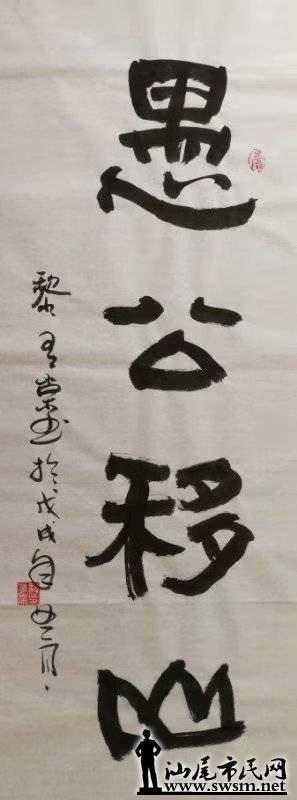 愚公移山
黎有
於戊戌年五月
汕尾市民网
www.swsm.net